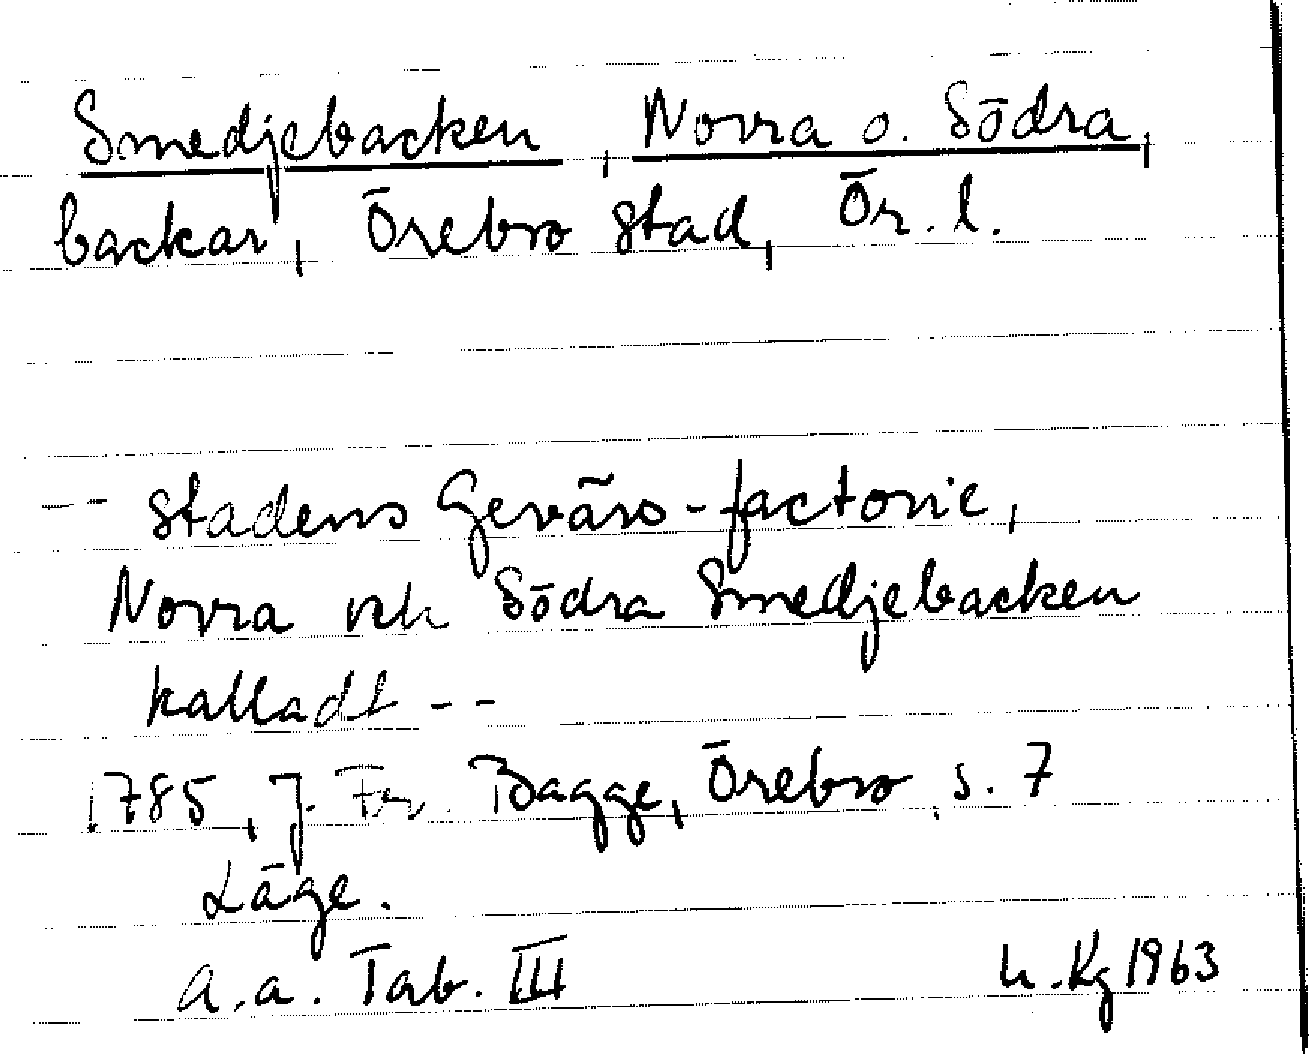 Smedjebacken, Norra o. Södra,
backar, Örebro stad, Ör. l.
-- stadens Gevärs-factorie,
Norra och Södra Smedjebacken
kalladt --
1785, J. Fr. Bagge, Örebro, s. 7
Läge.
a.a. Tab. III
h. Kg 1963